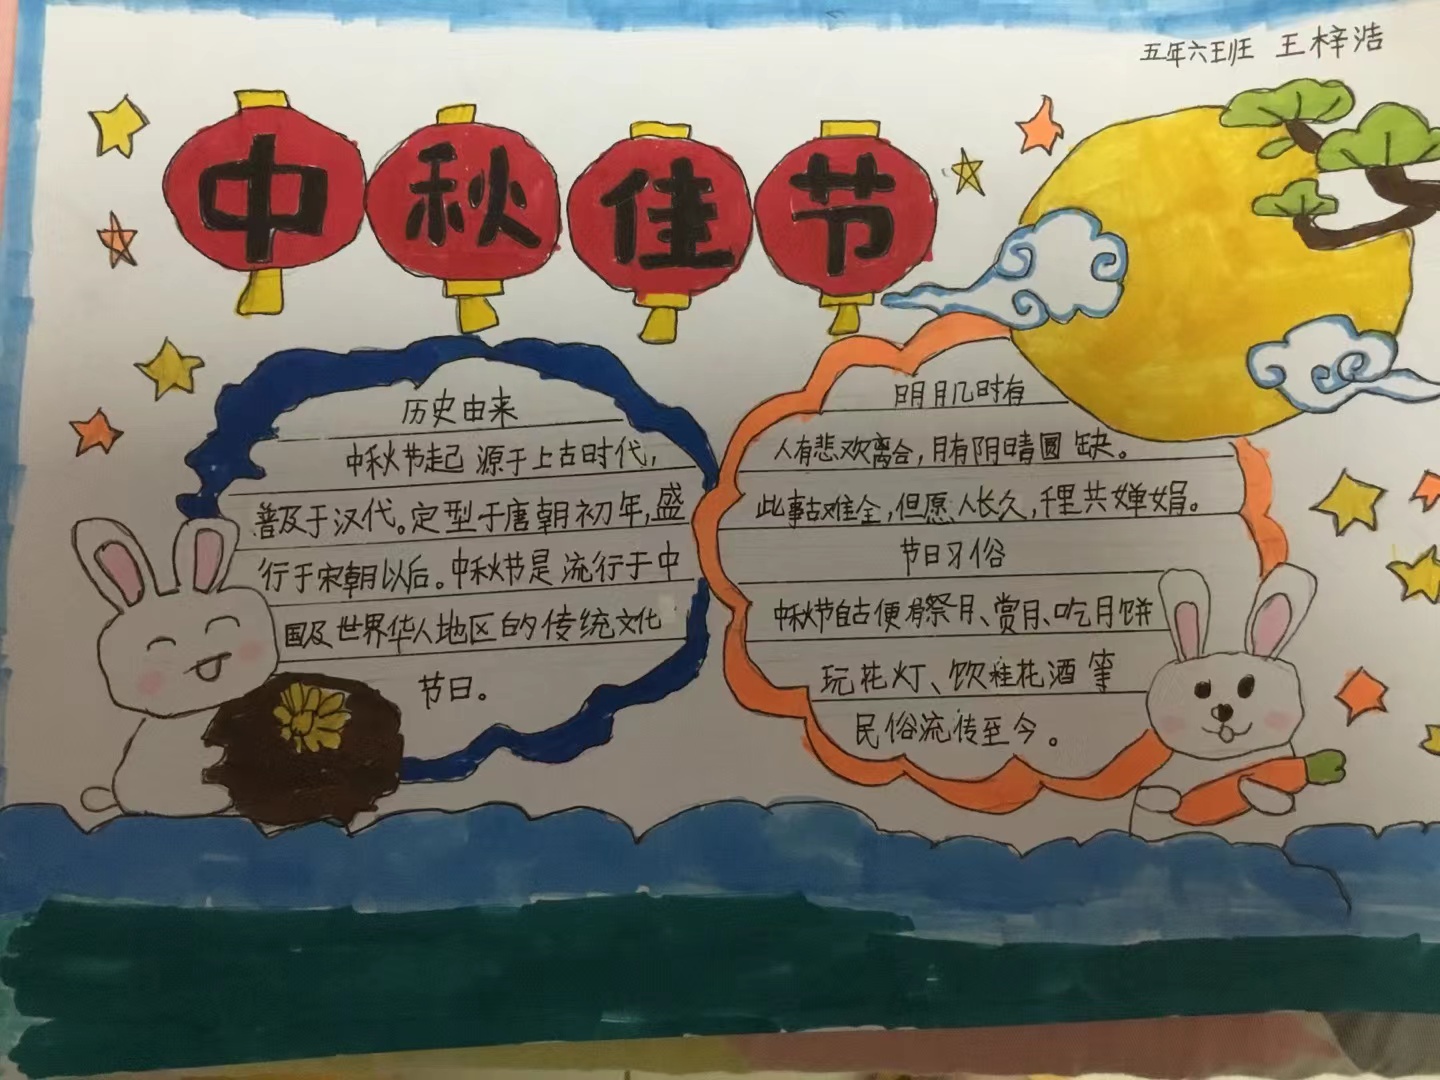 五年六班 王梓浩
中秋佳节
历史由来
中秋节起源于上古时代，
普及于汉代。定型于唐朝初年，盛
行于宋朝以后。中秋节是流行于中
国及世界华人地区的传统文化
节日。
明月几时有
人有悲欢离合，月有阴晴圆缺。
此事古难全，但愿人长久，千里共婵娟。
节日习俗
中秋节自古便有祭月、赏月、吃月饼
玩花灯、饮桂花酒等
民俗流传至今。